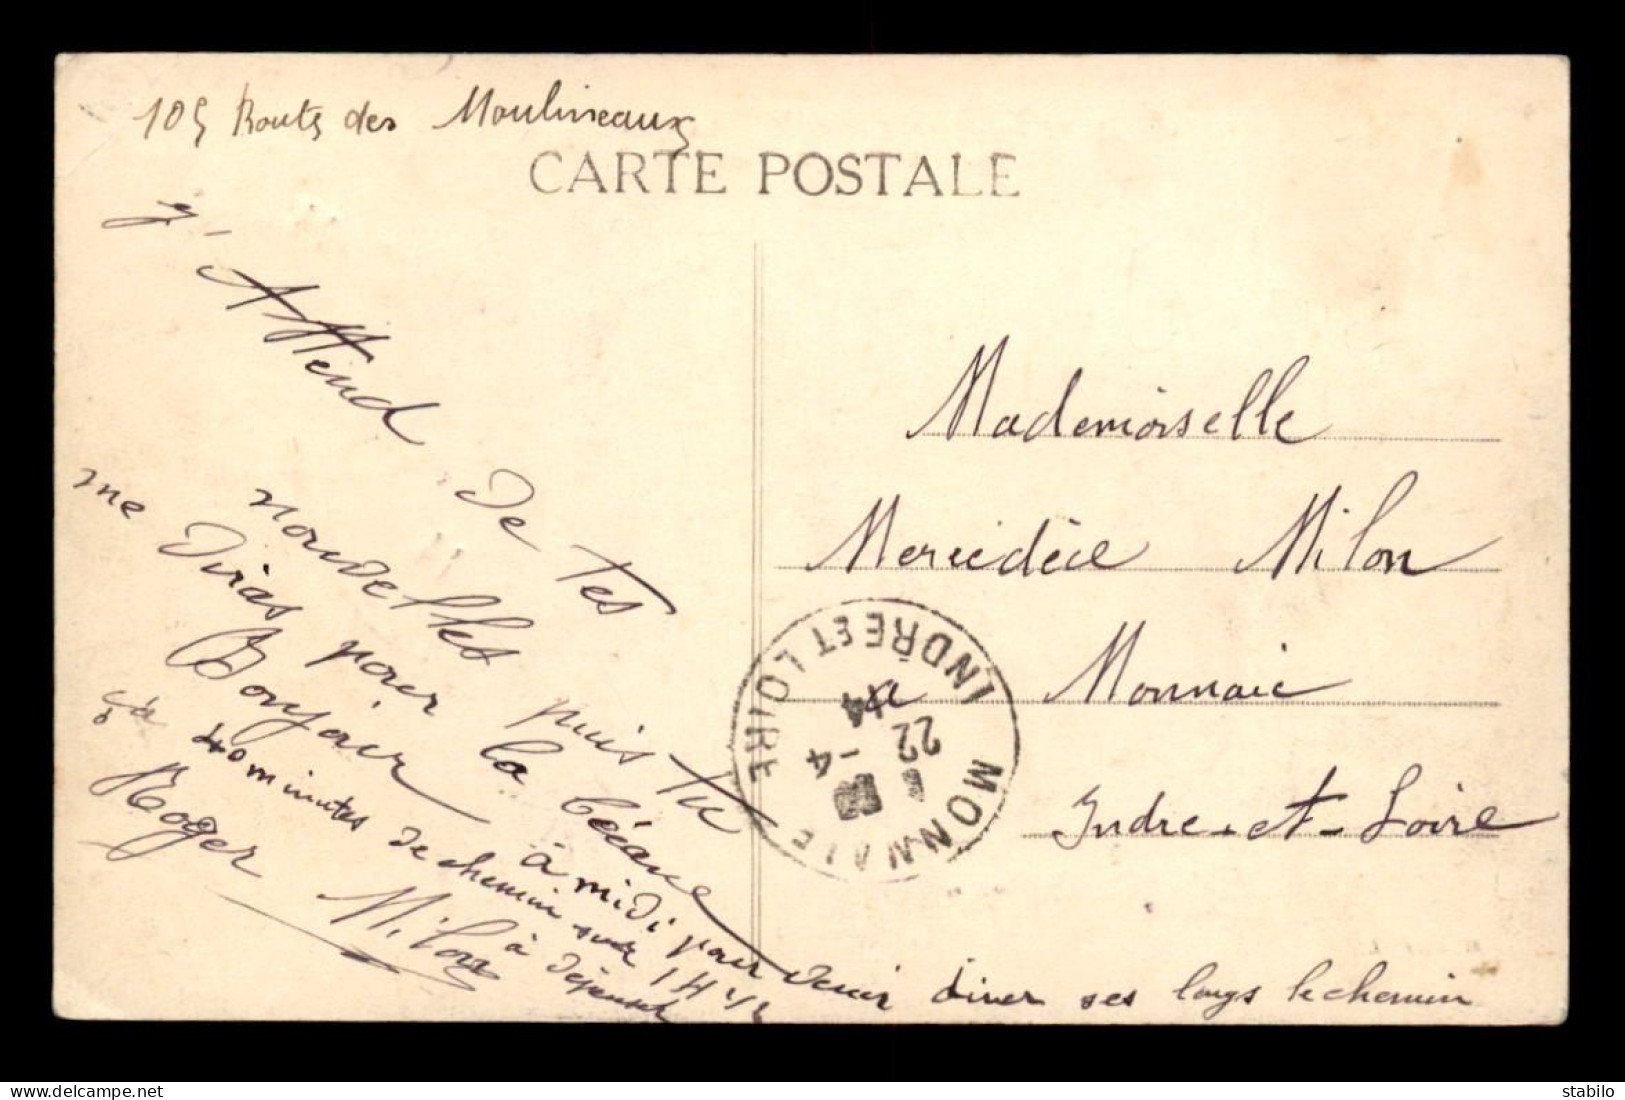 105 Route des Moulineaux
CARTE POSTALE
J'Attend de tes
nouvelles puis tu
me diras pour la
Bonjour à midi pour venir diner ses longs le chemin
ça 40 minutes de chemin sur 1H 1/2
à dépensé
Roger Milon
Mademoiselle
Mercédèce Milon
a Monnaie
Indre-et-Loire
MONNAIE INDRE ET LOIRE
22 -4
14
delcampe.net
stabilo